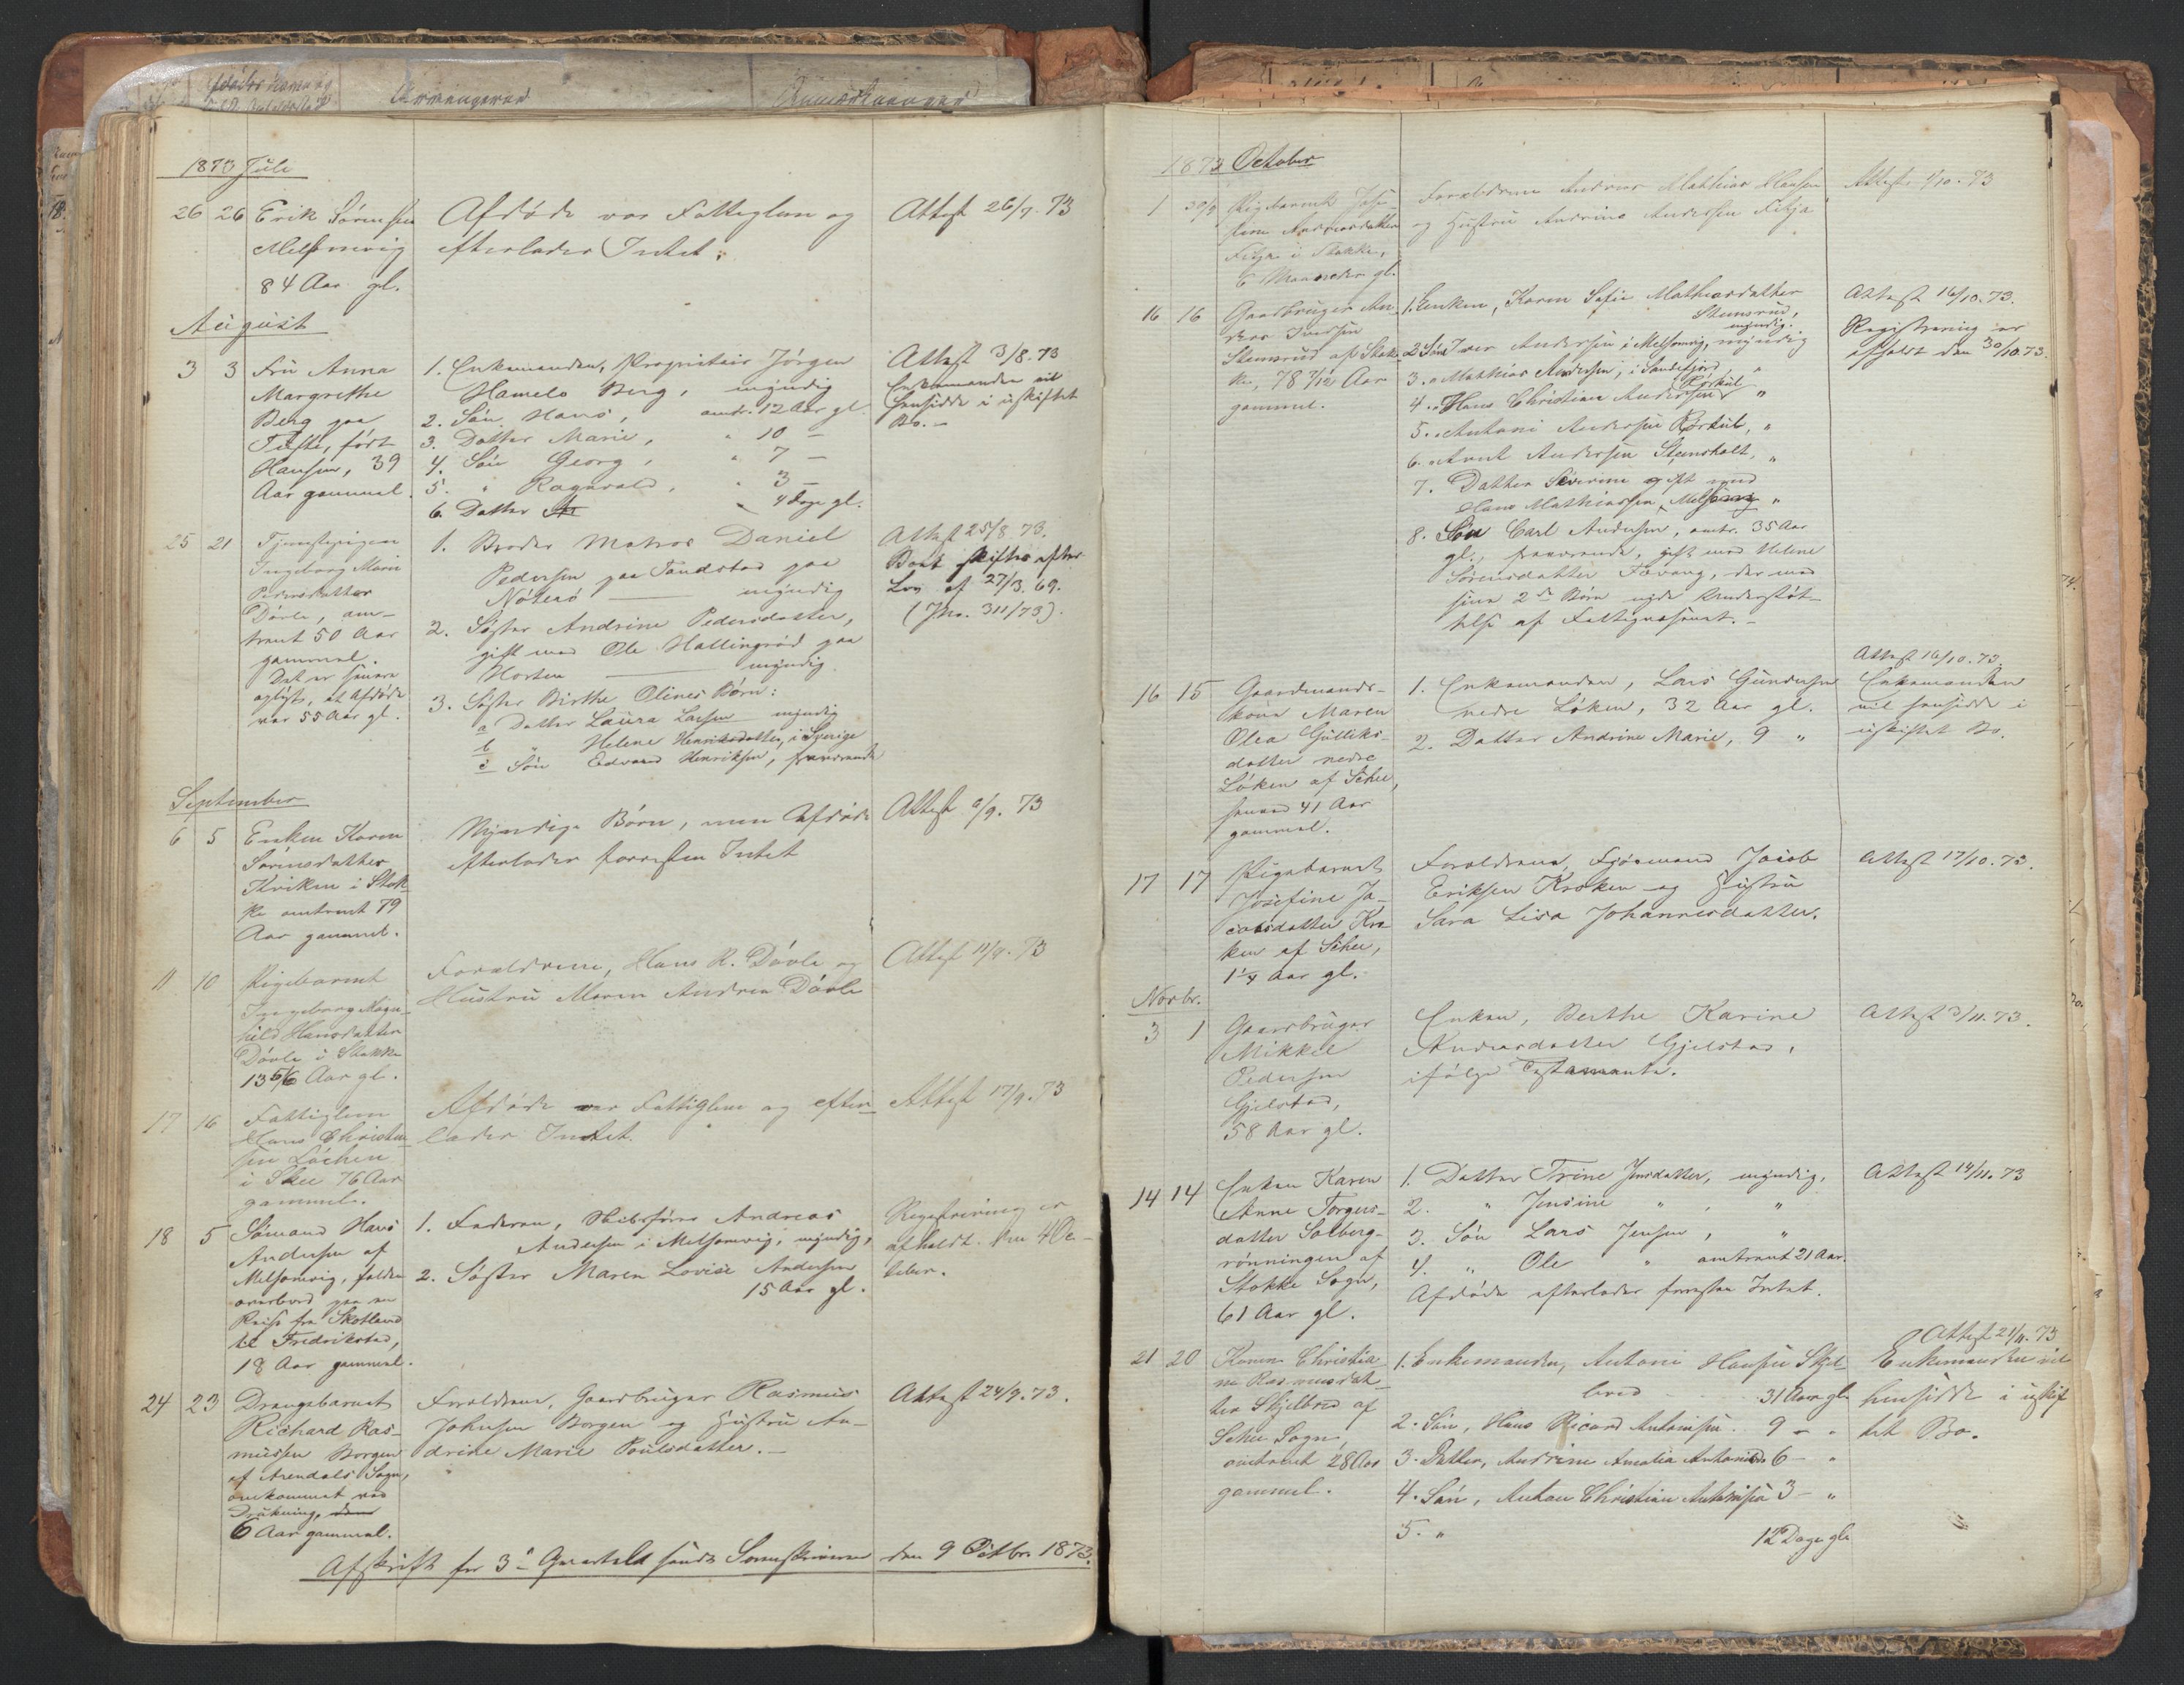 1873 Juli
26 26 Erik Sørensen Afdøde var Fattiglem og Attest 26/7. 73
Melsomvig efterlader Intet.
84 Aar gl.
August
3 3 Fru Anna 1. Enkemanden, Proprietair Jørgen Attest 3/8. 73
Margrethe Hamelo Berg, myndig Enkemanden vil
Berg paa 2. Søn Hans, omtr. 12 Aar gl. hensidde i uskiftet
født 3. Datter Marie, " 10 — Bo. —
Hansen, 39 4. Søn Georg, " 7 —
Aar gammel. 5. " Ragnvald, " 3 —
6. Datter " 4 Dage gl.
25 21 Tjenestepigen 1. Broder Matros Daniel Attest 25/8 73.
Ingeborg Marie Pedersen paa Sandstad paa Boet skiftes efter
Pedersdatter Nøterø — myndig Lov af 27/3. 69.
Døvle, om- 2. Søster Andrine Pedersdatter, (Jno. 311/73).
trent 50 Aar gift med Ole Hallingrød paa
gammel. Horten — myndig.
Det er senere 3. Søster Birthe Olines Børn:
oplyst, at Afdøde a Datter Laura Larsen myndig
var 55 Aar gl. b " Helene Henriksdatter, i Sverige
c Søn Edvard Henriksen, fraværende
September
6 5 Enken Karen Myndige Børn, men Afdøde Attest 6/9. 73
Sørensdatter efterlader forresten Intet
i Stok-
ke omtrent 79
Aar gammel.
11 10 Pigebarnet Forældrene, Hans R. Døvle og Attest 11/9. 73
Ingeborg Magn- Hustru Maren Andrea Døvle
hild Hansdatter
Døvle i Stokke
13 5/6 Aar gl.
17 16 Fattiglem Afdøde var Fattiglem og efter- Attest 17/9. 73
Hans Christen- lader Intet.
sen Løchen
i Skee 76 Aar
gammel.
18 5 Sømand Hans 1. Faderen, Skibsfører Andreas Registrering er
Andersen af Andersen i Melsomvig, myndig, afholdt den 4 Oc-
Melsomvig, falden 2. Søster Maren Lovise Andersen tober.
overbord paa en 15 Aar gl.
Reise fra Skotland
til Fredrikstad,
18 Aar gammel.
24 23 Drengebarnet Forældrene, Gaardbruger Rasmus Attest 24/9. 73.
Richard Ras- Johnsen Borgen og Hustru An-
mussen Borgen drine Marie Poulsdatter. —
af Arendals Sogn,
omkommet ved
Drukning,
6 Aar gammel.
Afskrift for 3die Qvartal sendt Sorenskriveren den 9 Octbr. 1873.
1873 October
1 30/9 Pigebarnet Jose- Forældrene Andreas Mathias Hansen Attest 1/10. 73
fine Andreasdatter og Hustru Andrine Andersen Fekja
Fekja i Stokke,
6 Maaneder gl.
16 16 Gaardbruger An- 1. Enken, Karen Sofie Mathiasdatter Attest 16/10. 73.
ders Iversen Stensrud, myndig. Registrering er
Stensrud af Stok- 2 Søn Iver Andersen i Melsomvig, myndig afholdt den 30/10. 73.
ke, 78 7/12 Aar 3. " Mathias Andersen, i Sandefjord, "
gammel. 4. " Hans Christian Andersen Rørkul "
5. " Antoni Andersen Rørkul, "
6. " Arnt Andersen Stensholt, "
7. Datter Severine gift med
Hans Mathiassen, "
8. Søn Carl Andersen, omtr. 35 Aar
gl., fraværende, gift med Helene
Sørensdatter Fevang, der med
sine 2de Børn nyde Understøt-
telse af Fattigvæsenet. —
16 15 Gaardmands- 1. Enkemanden, Lars Gundersen Attest 16/10. 73.
kone Maren nedre Løken, 32 Aar gl. Enkemanden
Olea Gulliks- 2. Datter Andrine Marie, 9 " vil hensidde i
datter nedre uskiftet Bo.
Løken af Schee,
41 Aar
gammel.
17 17 Pigebarnet Forældrene, Jacob Attest 17/10. 73.
Josefine Ja- Eriksen Kroken og Hustru
cobsdatter Kro- Sara Lisa Johannesdatter.
ken af Schee,
1 1/4 Aar gl.
Novbr.
3 1 Gaardbruger Enken, Berthe Karine Attest 3/11. 73.
Mikkel Andersdatter Gjelstad,
Pedersen ifølge Testamente.
Gjelstad,
58 Aar gl.
14 14 Enken Karen 1. Datter Trine Jensdatter, myndig. Attest 14/11. 73
Anne Torgers- 2. " Jensine " , "
datter Solberg- 3. Søn Lars Jensen, "
rønningen af 4. " Ole " omtrent 21 Aar.
Stokke Sogn, Afdøde efterlader forresten Intet.
61 Aar gl.
21 20 Karen Christia- 1. Enkemanden, Antoni Hansen Skjel- Attest 21/11. 73
ne Rasmusdat- bred 31 Aar gl. Enkemanden vil
ter Skjelbred af 2. Søn, Hans Ricard Antonisen 9 — " hensidde i uskif-
Schee Sogn, 3. Datter, Andrine Amalia Antonisd. 6 — " tet Bo.
omtrent 28 Aar 4. Søn, Anton Christian Antonisen 3 — "
gammel. 5. " 12 Dage gl.